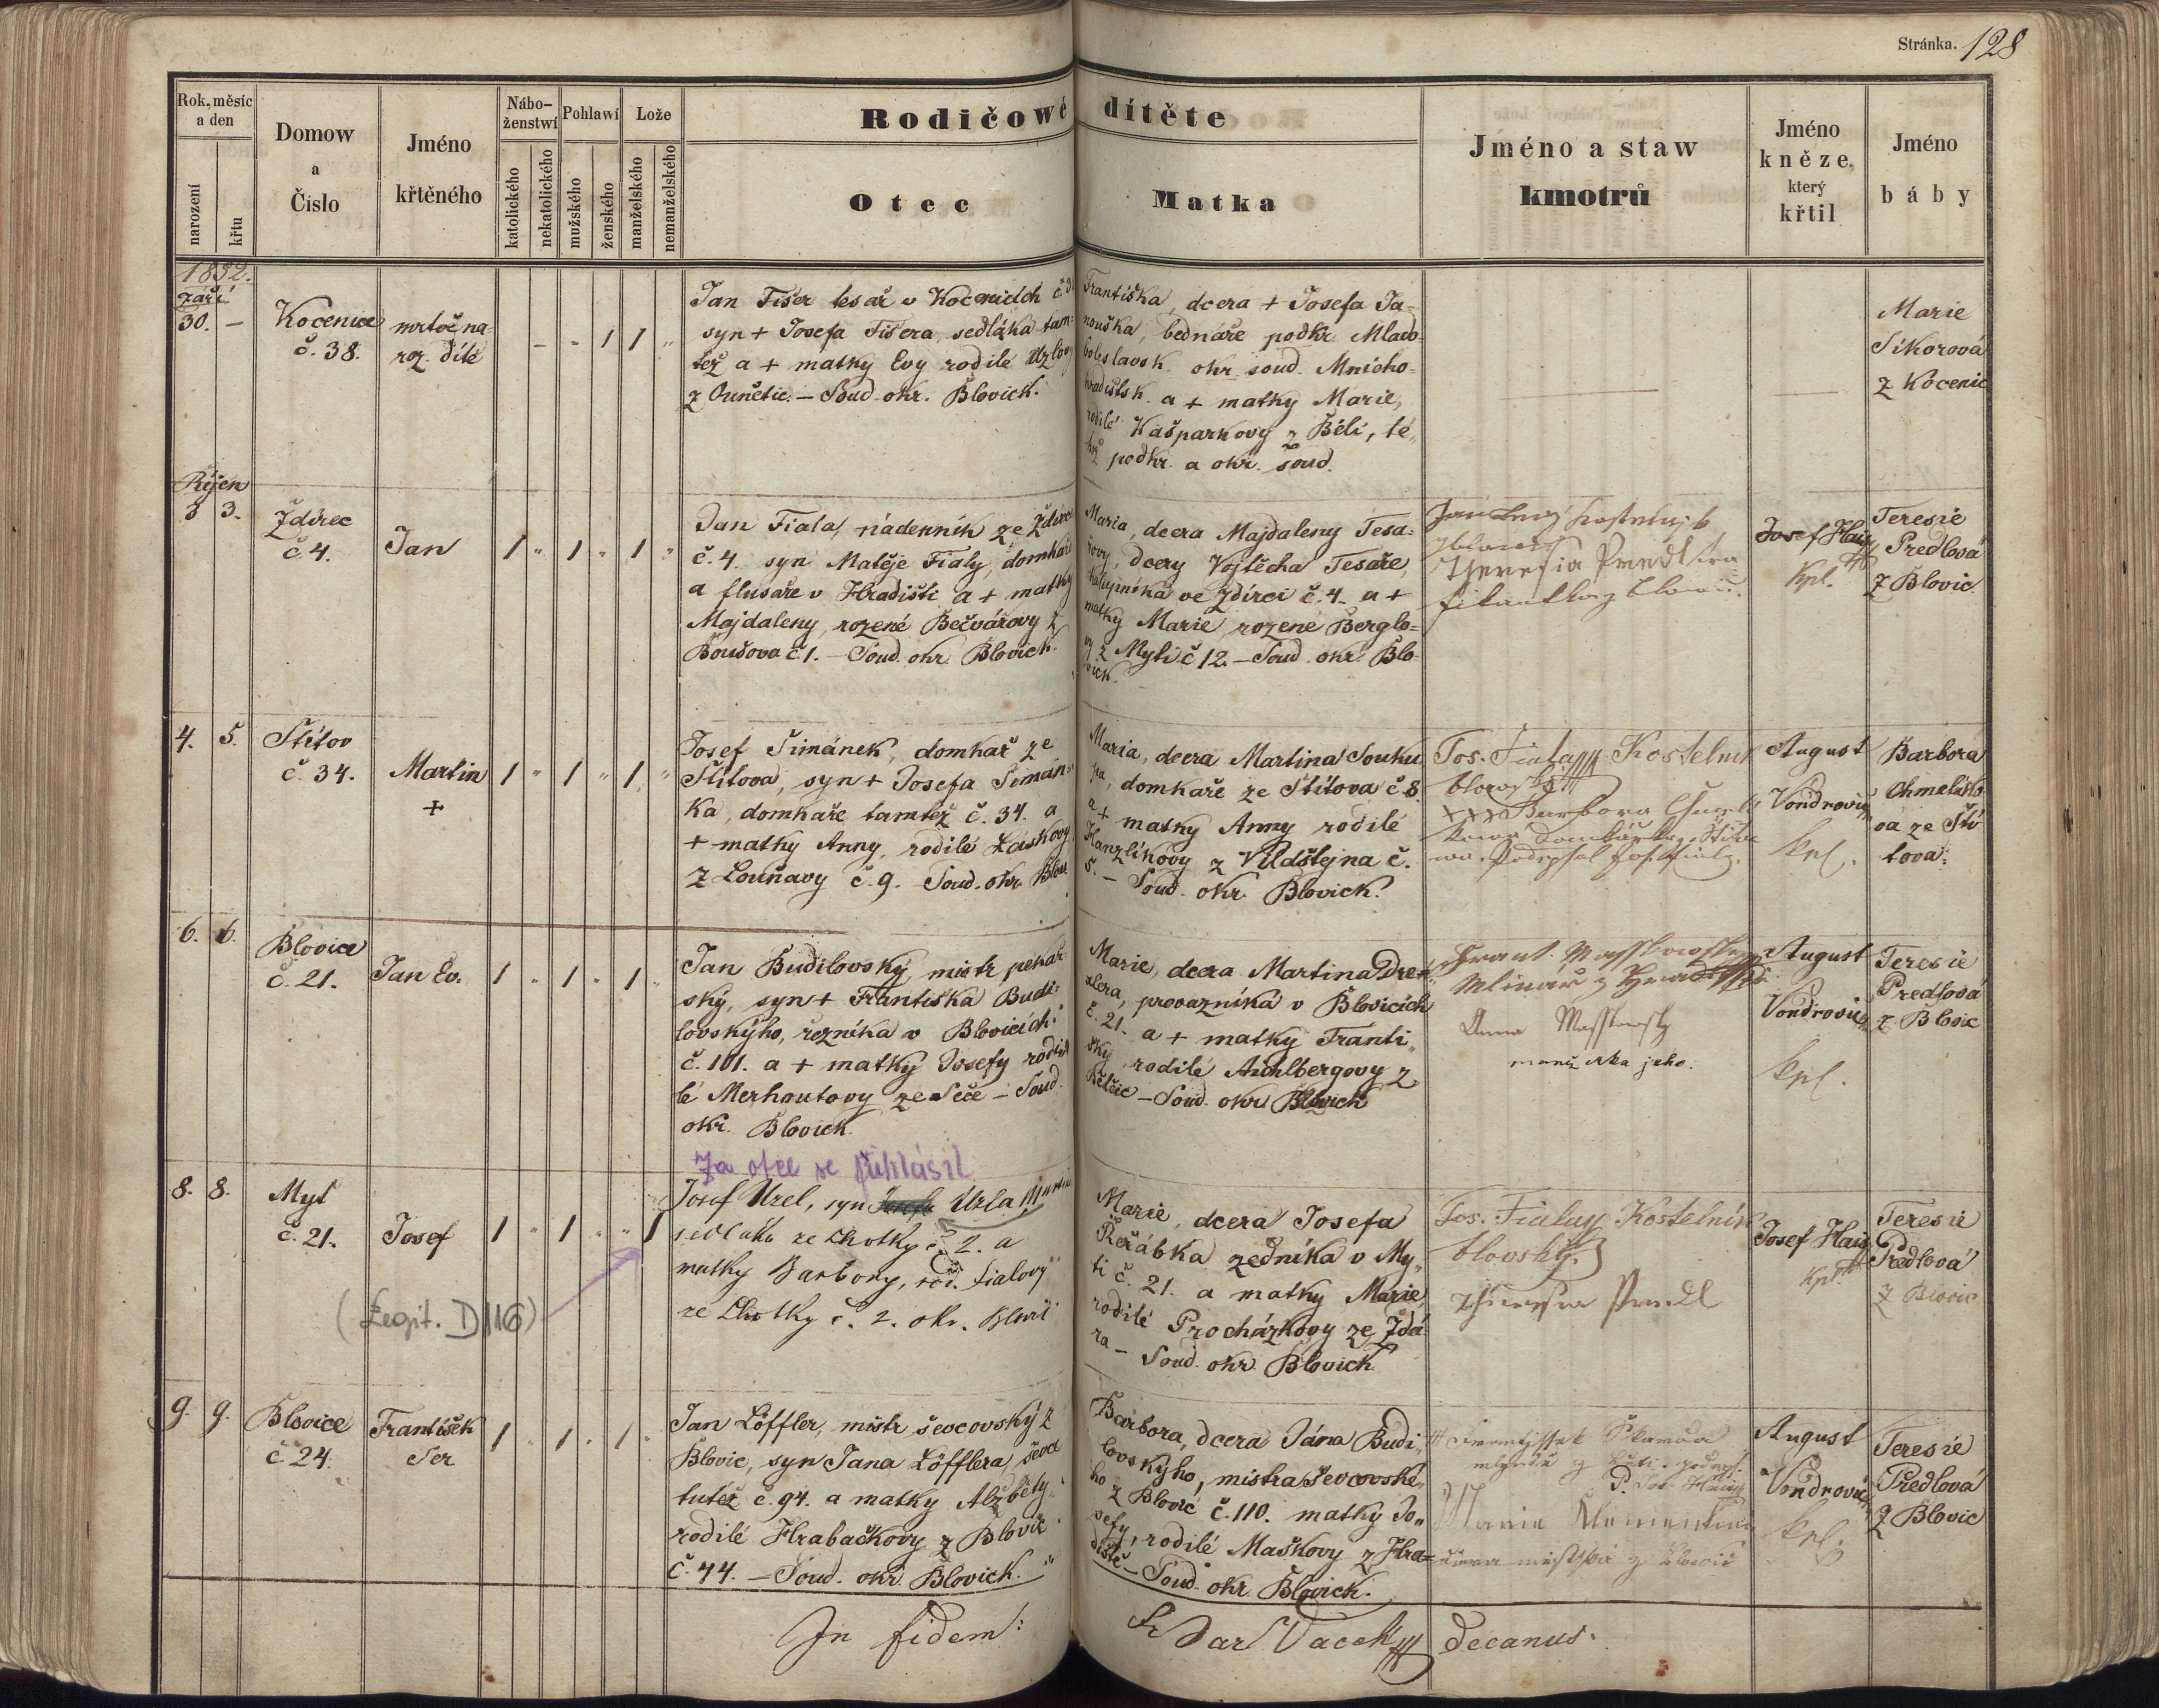 Stránka. 128
Rok, měsíc
a den
narození
křtu
Domow
a
Číslo
Jméno
křtěného
Nábo-
ženstwí
katolického
nekatolického
Pohlawí
mužského
ženského
Lože
manželského
nemanželského
Rodičowé dítěte
Otec
Matka
Jméno a staw
kmotrů
Jméno
kněze,
který
křtil
Jméno
báby
1852.
Září
30. —
Kocenice
č. 38.
mrtoě na
roz. dítě
- - 1 1 "
Jan Fišer tesař v Kocenicích č 3
syn + Josefa Fišera, sedláka tam-
též a + matky Evy rodilé Uzlov
z Ounětic. — Soud. okr. Blovick.
Františka, dcera + Josefa Ja-
nouška, bednáře podkr. Mlado-
boleslavsk. okr. soud. Mnicho-
hradištsk. a + matky Marie,
rodilé Kašparkovy z Běli, té-
hož podkr. a okr. soud.
Marie
Sikorová
z Kocenic
Říjen
3 3.
Zdírec
č. 4.
Jan
1 " 1 " 1 "
Jan Fiala, nádenník ze Zdírce
č. 4. syn Matěje Fialy, domkáře
a flusaře v Hradišti a + matky
Majdaleny, rozené Bečvářovy z
Boušova č 1. — Soud. okr. Blovick.
Maria, dcera Majdaleny Tesa-
řovy, dcery Vojtěcha Tesaře,
chalupníka ve Zdírci č. 4. a +
matky Marie, rozené Berglo-
vy z Mytí č 12. — Soud. okr. Blo-
vick.
Josef Haig
kpl.
Teresie
Predlová
z Blovic
4. 5.
Štítov
č. 34.
Martin
+
1 " 1 " 1 "
Josef Šimánek, domkář ze
Štítova, syn + Josefa Šimán-
ka, domkáře tamtéž č. 34. a
+ matky Anny, rodilé Láskovy
z Louňavy č. 9. Soud. okr. Blov.
Maria, dcera Martina Souku
pa, domkáře ze Štítova č 8.
a + matky Anny rodilé
Hanzlíkovy z Vildštejna č.
5. — Soud. okr. Blovick.
Jos. Fiala Kostelník
blovský
xxx Barbora
Podepsal Jos. Fiala.
August
Vondrovic
kpl.
Barbora
Chmelíko
va ze Ští
tova.
6. 6.
Blovice
č. 21.
Jan Ev.
1 " 1 " 1 "
Jan Budilovský, mistr pekař
ský, syn + Františka Budi-
lovskýho, řezníka v Blovicích
č. 101. a + matky Josefy rodi
lé Merhautovy ze Seče — Soud.
okr. Blovick.
Marie, dcera Martina Dre-
xlera, provazníka v Blovicích
č. 21. a + matky Franti-
šky, rodilé Auhlbergovy z
Bělčic — Soud. okr. Blovick
Frant.
Mlinář z
Anna
manželka jeho.
August
Vondrovic
kpl.
Teresie
Predlová
z Blovic
Za otce se přihlásil
8. 8.
Myt
č. 21.
Josef
1 " 1 " " 1
(Legit. D/116)
Josef Uzel, syn Josefa Uzla, Martina
sedláka ze Lhotky č. 2. a
matky Barbory, roz. Fialovy
ze Lhotky č. 2. okr. Blovic
Marie, dcera Josefa
Řeřábka zedníka v My-
ti č. 21. a matky Marie,
rodilé Procházkovy ze Zdá
ra — Soud. okr. Blovick
Jos. Fiala Kostelník
blovský.
Theresia Predl
Josef Haig
kpl.
Teresie
Predlová
z Blovic
9. 9.
Blovice
č 24.
František
Ser
1 " 1 " 1 "
Jan Löffler, mistr ševcovský z
Blovic, syn Jana Löfflera, ševce
tutéž č. 94. a matky Alžběty,
rodilé Hrabačkovy z Blovic
č. 44. — Soud. okr. Blovick.
Barbora, dcera Jána Budi-
lovskýho, mistra ševcovské-
ho z Blovic č. 110. matky Jo-
sefy, rodilé Maškovy z Hra-
diště — Soud. okr. Blovick.
Škarda
P. Jos. Haig
Maria
August
Vondrovic
kpl.
Teresie
Předlová
z Blovic
In fidem:
Vacek decanus.